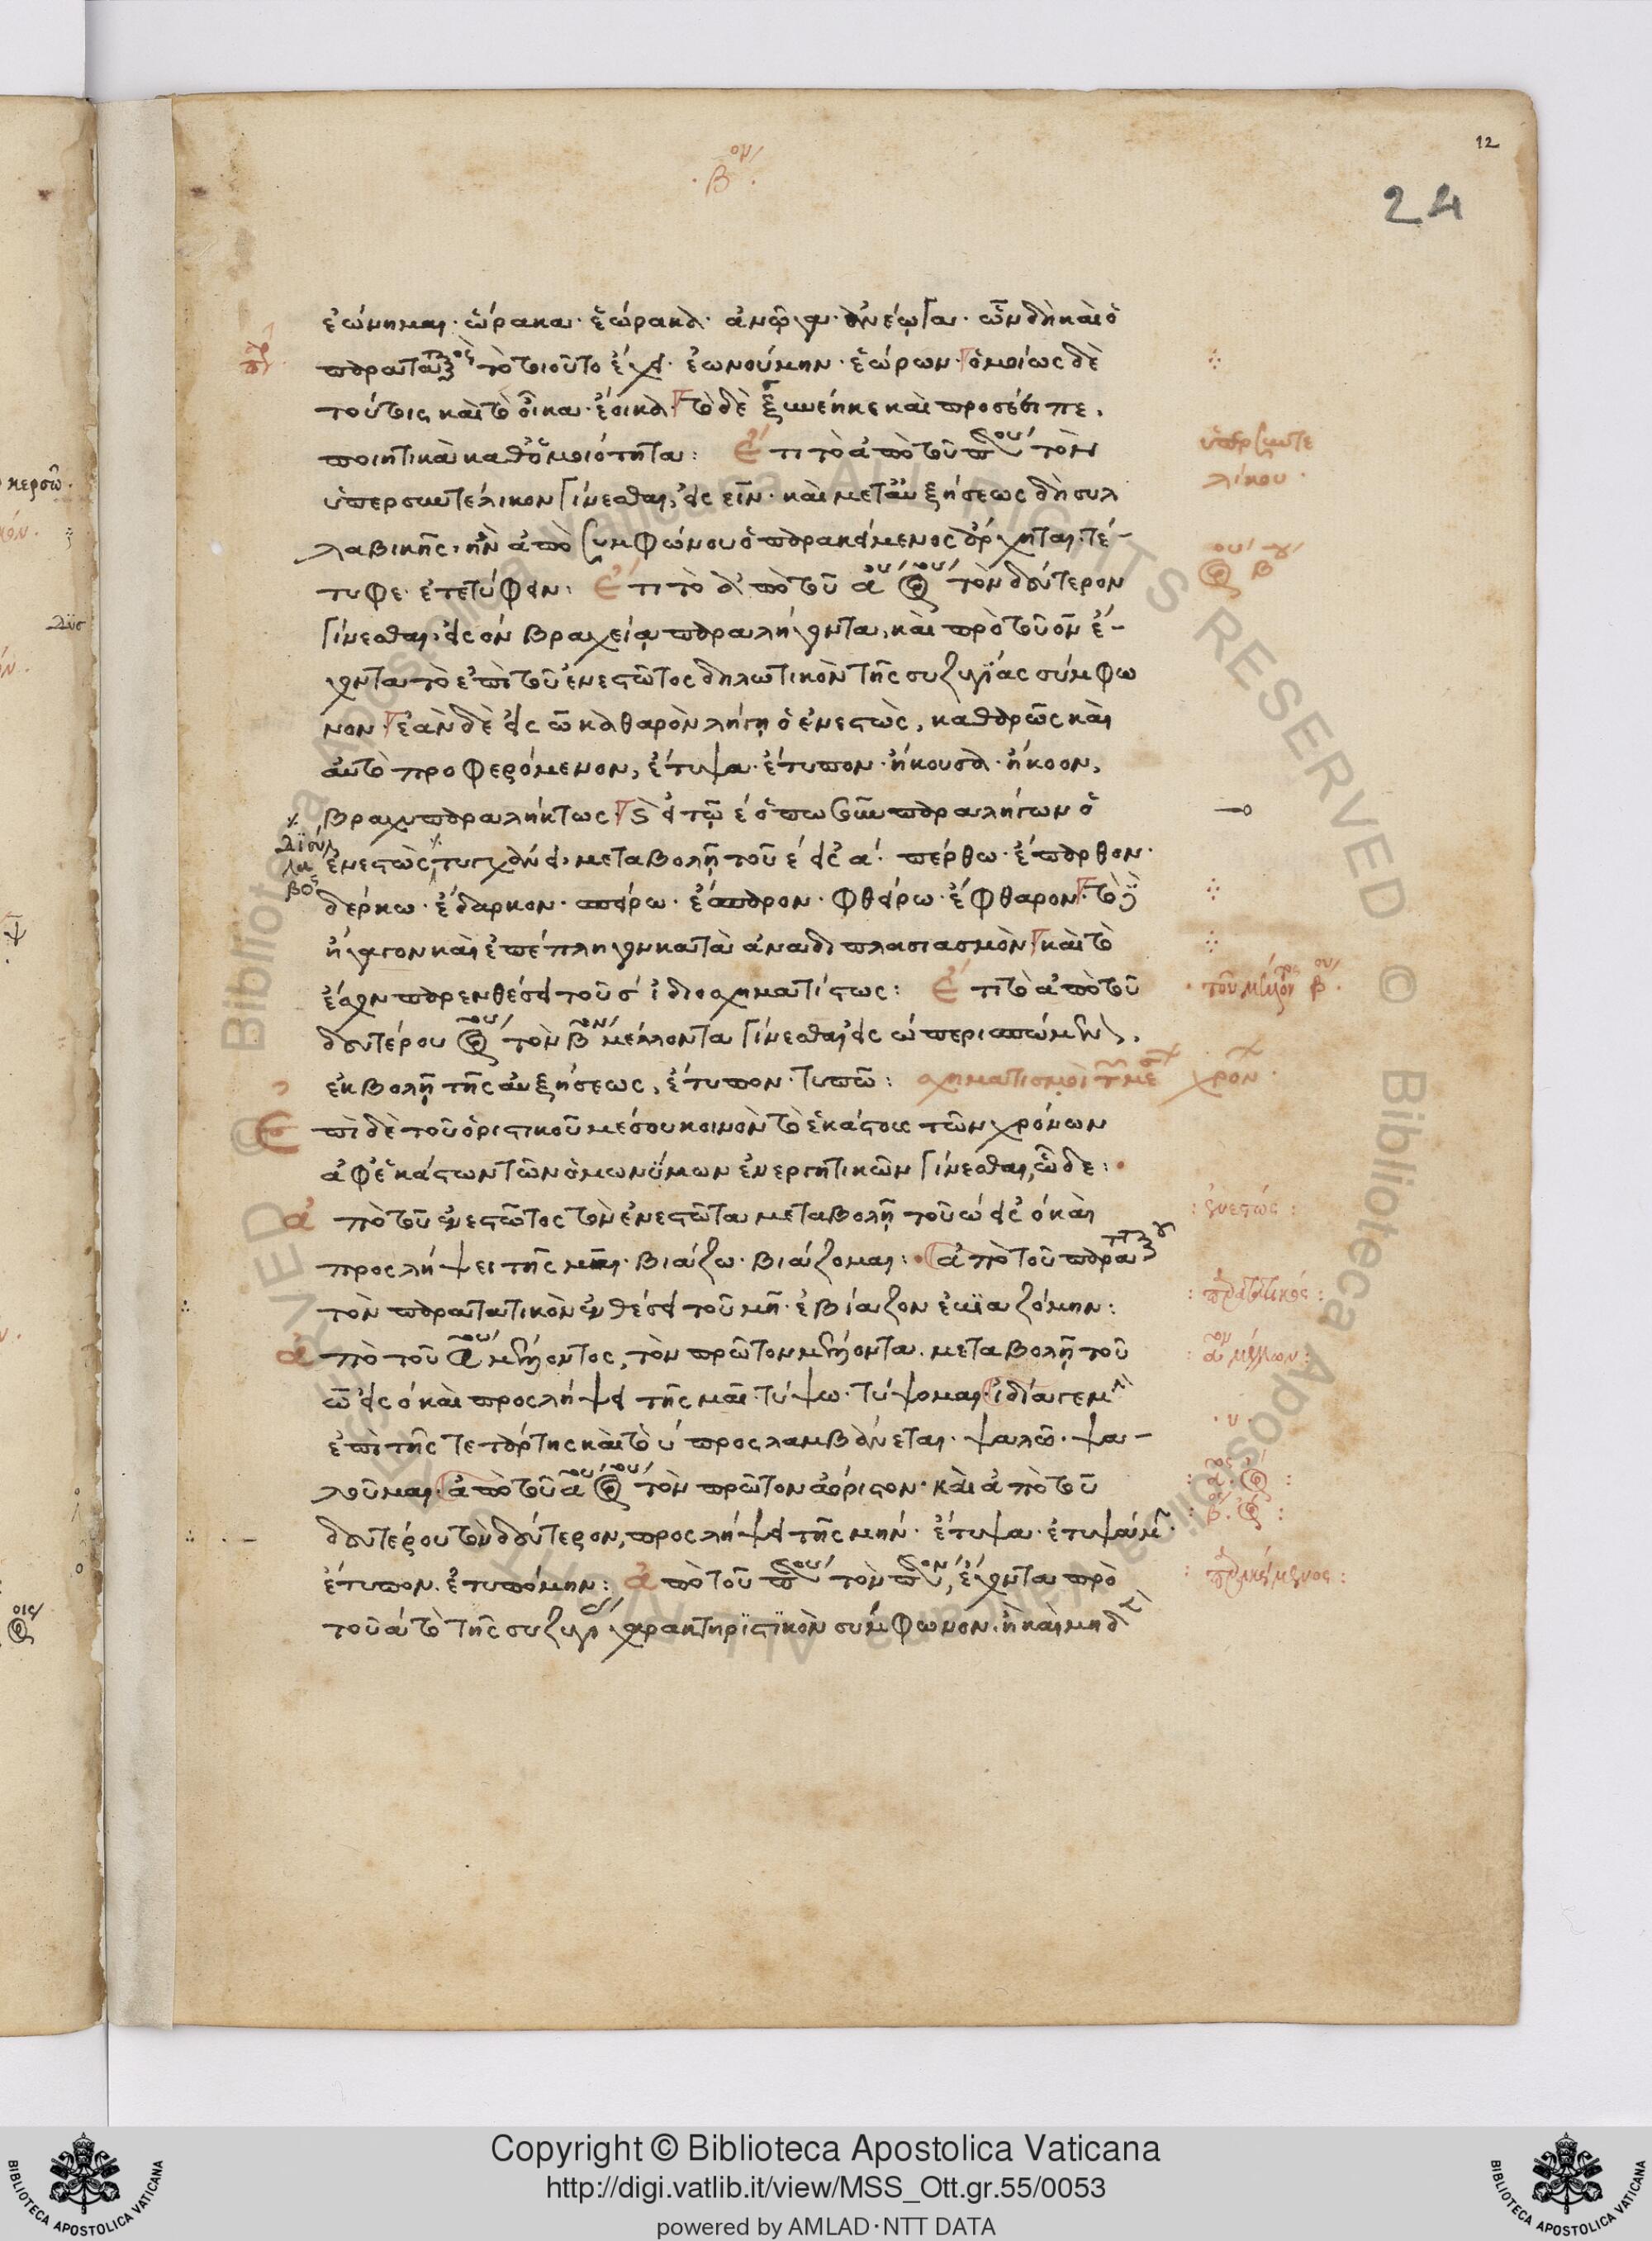 12
24
·β ον·
ἐώνημαι· ἑώρακα· ἑώρακα· ἀνέῳγα· ὧν δὴ καὶ ὁ
παρατατικὸς τὸ τοιοῦτο ἔχει· ἐωνούμην· ἑώρων· ὁμοίως δὲ
τούτοις καὶ τὸ οἶκα· ἔοικα· τὸ δὲ ξυνέηκε καὶ προσέειπε,
ποιητικὰ καθ' ὁμοιότητα: Ἔτι τὸ ἀπὸ τοῦ π τὸν
ὑπερσυντέλικον γίνεσθαι, εἰς ειν· καὶ μετ' αὐξήσεως δὴ συλ
λαβικῆς, ἢν ἀπὸ συμφώνου ὁ παρακείμενος ἄρχηται· τέ-
τυφε· ἐτετύφειν: Ἔτι τὸ ἀπὸ τοῦ α τὸν δεύτερον
γίνεσθαι, εἰς ον βραχείᾳ παραλήγοντα, καὶ πρὸ τοῦ ον ἔ-
χοντα τὸ ἐπὶ τοῦ ἐνεστῶτος δηλωτικὸν τῆς συζυγίας σύμφω
νον· ἐὰν δὲ εἰς ω καθαρὸν λήγῃ ὁ ἐνεστὼς, καθαρῶς καὶ
αὐτὸ προφερόμενον, ἔτυψα· ἔτυπον· ἤκουσα· ἤκοον,
βραχυπαραλήκτως· εἰ τῷ ε ὁπωσοῦν παραλήγων ὁ
ἐνεστὼς τυγχάνει, μεταβολῇ τοῦ ε εἰς α· πέρθω· ἔπαρθον·
δέρκω· ἔδαρκον· σπείρω· ἔσπαρον· φθείρω· ἔφθαρον· τὸ
ἤγαγον καὶ ἐπέπληγον κατὰ ἀναδιπλασιασμὸν· καὶ τὸ
ἔσχον παρενθέσει τοῦ σ ἰδιοσχηματίστως: Ἔτι τὸ ἀπὸ τοῦ
δευτέρου τὸν β μέλλοντα γίνεσθαι εἰς ω περισπώμενον,
ἐκβολῇ τῆς αὐξήσεως, ἔτυπον· τυπῶ: σχηματισμοὶ τῶν μέσων χρόν·
Ἐπὶ δὲ τοῦ ὁριστικοῦ μέσου κοινὸν τὸ ἑκάστους τῶν χρόνων
ἀφ' ἑκάστων τῶν ὁμωνύμων ἐνεργητικῶν γίνεσθαι, ὧδε:
ἀπὸ τοῦ ἐνεστῶτος τὸν ἐνεστῶτα μεταβολῇ τοῦ ω εἰς ο καὶ
προσλήψει τῆς μαι· βιάζω· βιάζομαι: ἀπὸ τοῦ παρατατικοῦ
τὸν παρατατικὸν ἐνθέσει τοῦ μη· ἐβίαζον ἐβιαζόμην:
ἀπὸ τοῦ α μέλλοντος, τὸν πρῶτον μέλλοντα μεταβολῇ τοῦ
ω εἰς ο καὶ προσλήψει τῆς μαι· τύψω· τύψομαι· ἰδίᾳ γε μὴν
ἐπὶ τῆς τετάρτης καὶ τὸ υ προσλαμβάνεται· ψαλῶ· ψα-
λοῦμαι· ἀπὸ τοῦ α τὸν πρῶτον ἀόριστον· καὶ ἀπὸ τοῦ
δευτέρου τὸν δεύτερον, προσλήψει τῆς μην· ἔτυψα· ἐτυψάμην·
ἔτυπον· ἐτυπόμην: ἀπὸ τοῦ π τὸν π, ἔχοντα πρὸ
τοῦ α τὸ τῆς συζυγίας χαρακτηριστικὸν σύμφωνον, ἢ καὶ μηδὲ
ὑπερσυντε
λίκου·
τοῦ μέλλοντος β·
: ἐνεστώς :
: παρατατικός :
: α μέλλων:
·υ·
: παρακείμενος :
Copyright © Biblioteca Apostolica Vaticana
http://digi.vatlib.it/view/MSS_Ott.gr.55/0053
powered by AMLAD·NTT DATA